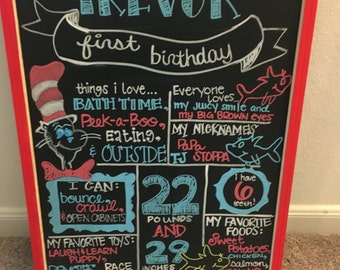 TREVOR
first birthday
things i love...
BATH TIME,
Peek-a-Boo,
Eating,
& OUTSIDE
Everyone Loves...
my Juicy smile and
my BIG BROWN EYES
MY NICKNAMES:
PaPa
TJ STOPPA
I CAN:
bounce,
crawl,
& OPEN CABINETS
22
POUNDS
AND
29
INCHES
i have
6
teeth!
MY FAVORITE FOODS:
Sweet
Potatoes,
CHICKEN,
Salmon,
MY FAVORITE TOYS:
LAUGH & LEARN
PUPPY,
RACE